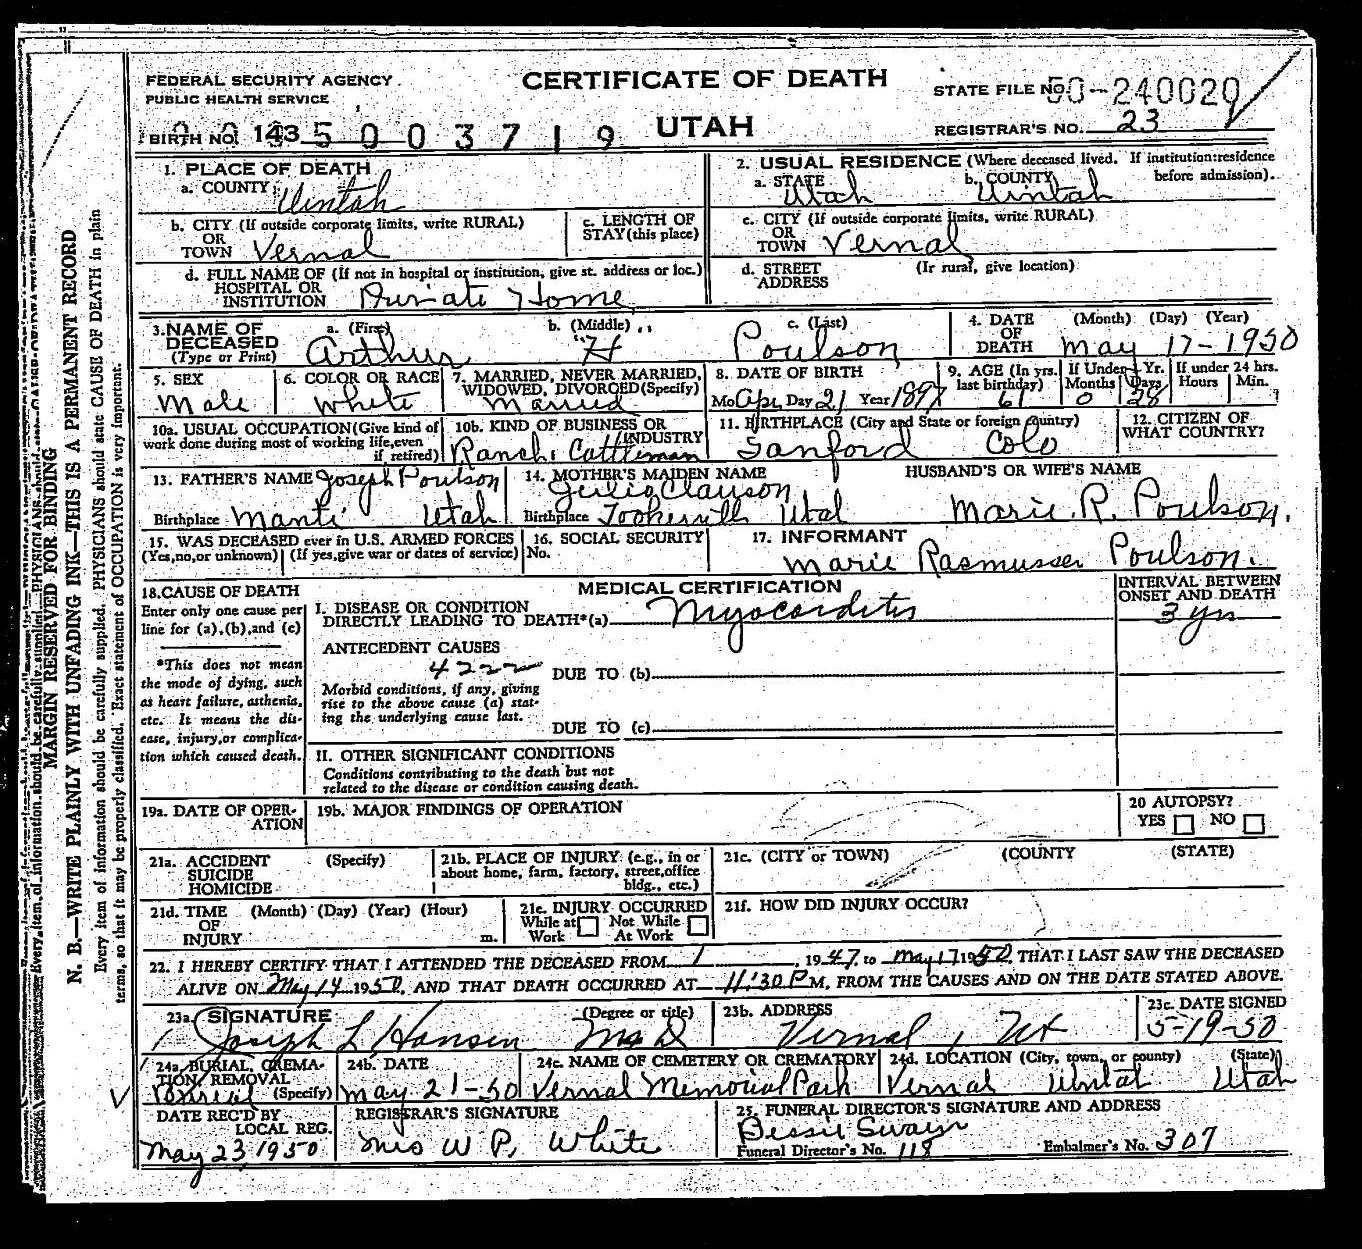 FEDERAL SECURITY AGENCY
PUBLIC HEALTH SERVICE
CERTIFICATE OF DEATH
UTAH
STATE FILE NO. 50-240020
BIRTH NO. 143 5003719
REGISTRAR'S NO. 23
1. PLACE OF DEATH
a. COUNTY Uintah
2. USUAL RESIDENCE (Where deceased lived. If institution:residence before admission).
a. STATE Utah b. COUNTY Uintah
b. CITY (If outside corporate limits, write RURAL)
OR
TOWN Vernal
c. LENGTH OF
STAY (this place)
c. CITY (If outside corporate limits, write RURAL)
OR
TOWN Vernal
d. FULL NAME OF (If not in hospital or institution, give st. address or loc.)
HOSPITAL OR
INSTITUTION Private Home
d. STREET (Ir rural, give location)
ADDRESS
3. NAME OF DECEASED (Type or Print)
a. (First) Arthur b. (Middle) "H c. (Last) Poulson
4. DATE OF DEATH (Month) (Day) (Year) May 17-1950
5. SEX Male
6. COLOR OR RACE White
7. MARRIED, NEVER MARRIED, WIDOWED, DIVORCED(Specify) Married
8. DATE OF BIRTH
Mo Apr Day 21 Year
9. AGE (In yrs. last birthday) 61
If Under 1 Yr. Months 0 Days 28
If under 24 hrs. Hours Min.
10a. USUAL OCCUPATION(Give kind of work done during most of working life,even if retired)
10b. KIND OF BUSINESS OR INDUSTRY
Ranch. Cattleman
11. BIRTHPLACE (City and State or foreign country)
Sanford Colo
12. CITIZEN OF WHAT COUNTRY?
13. FATHER'S NAME Joseph Poulson
Birthplace Manti Utah
14. MOTHER'S MAIDEN NAME
Julia Clawson
Birthplace Utah
HUSBAND'S OR WIFE'S NAME
Marie. R. Poulson.
15. WAS DECEASED ever in U.S. ARMED FORCES
(Yes,no,or unknown) (If yes,give war or dates of service)
16. SOCIAL SECURITY
No.
17. INFORMANT
Marie Rasmussen Poulson.
18. CAUSE OF DEATH
Enter only one cause per line for (a),(b),and (c)
*This does not mean the mode of dying, such as heart failure, asthenia, etc. It means the disease, injury,or complication which caused death.
MEDICAL CERTIFICATION
INTERVAL BETWEEN ONSET AND DEATH
I. DISEASE OR CONDITION
DIRECTLY LEADING TO DEATH*(a) Myocarditis 3 yrs
ANTECEDENT CAUSES
4222
DUE TO (b)
Morbid conditions, if any, giving rise to the above cause (a) stating the underlying cause last.
DUE TO (c)
II. OTHER SIGNIFICANT CONDITIONS
Conditions contributing to the death but not related to the disease or condition causing death.
19a. DATE OF OPERATION
19b. MAJOR FINDINGS OF OPERATION
20 AUTOPSY?
YES NO
21a. ACCIDENT (Specify)
SUICIDE
HOMICIDE
21b. PLACE OF INJURY (e.g., in or about home, farm, factory, street,office bldg., etc.)
21c. (CITY or TOWN) (COUNTY (STATE)
21d. TIME (Month) (Day) (Year) (Hour)
OF
INJURY m.
21e. INJURY OCCURRED
While at Work Not While At Work
21f. HOW DID INJURY OCCUR?
22. I HEREBY CERTIFY THAT I ATTENDED THE DECEASED FROM 1, 1947, to May 17 1950, THAT I LAST SAW THE DECEASED
ALIVE ON May 14 1950, AND THAT DEATH OCCURRED AT 11:30 P M, FROM THE CAUSES AND ON THE DATE STATED ABOVE.
23a. SIGNATURE (Degree or title)
Joseph L Hansen M D
23b. ADDRESS
Vernal, Ut
23c. DATE SIGNED
5-19-50
24a. BURIAL, CREMATION, REMOVAL (Specify)
24b. DATE
May 21-50
24c. NAME OF CEMETERY OR CREMATORY
Vernal Memorial Park
24d. LOCATION (City, town, or county) (State)
Vernal Uintah Utah
DATE REC'D BY LOCAL REG.
May 23, 1950
REGISTRAR'S SIGNATURE
Mrs W P. White
25. FUNERAL DIRECTOR'S SIGNATURE AND ADDRESS
Bessie Swain
Funeral Director's No. 118 Embalmer's No. 307
MARGIN RESERVED FOR BINDING
N. B.—WRITE PLAINLY WITH UNFADING INK—THIS IS A PERMANENT RECORD
Every item of information should be carefully supplied. PHYSICIANS should state CAUSE OF DEATH in plain
terms, so that it may be properly classified. Exact statement of OCCUPATION is very important.